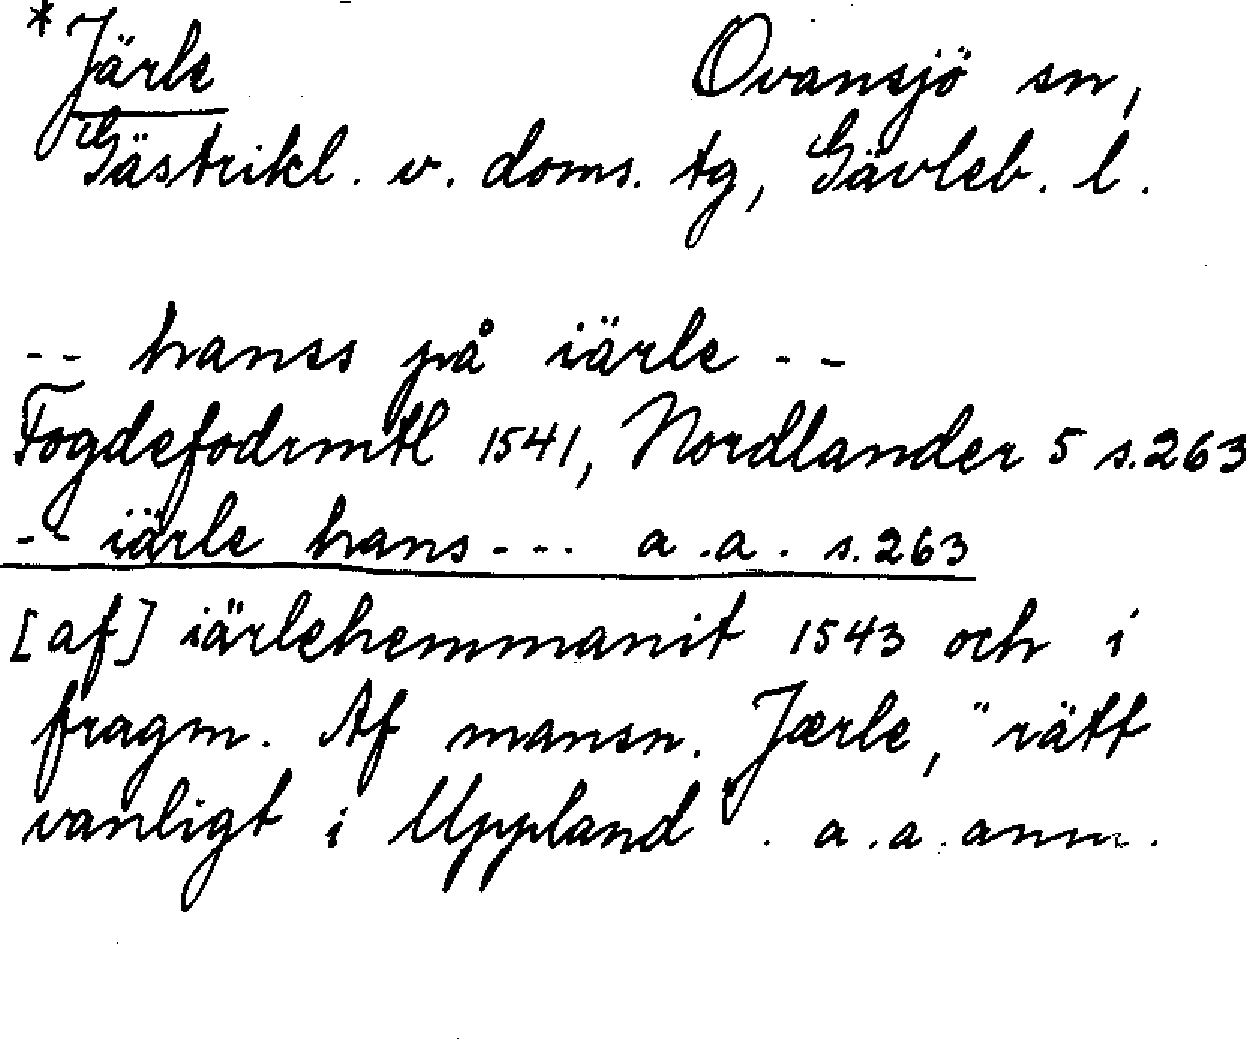 *Järle Ovansjö sn,
Gästrikl. v. doms. tg, Gävleb. l.
-- hanss på iärle --
Fogdefodrmtl 1541, Nordlander 5 s.263
-- iärle hans --- a.a. s.263
[af] iärlehemmanit 1543 och i
fragm. Af mansn. Jærle, "rätt
vanligt i Uppland". a.a. anm.